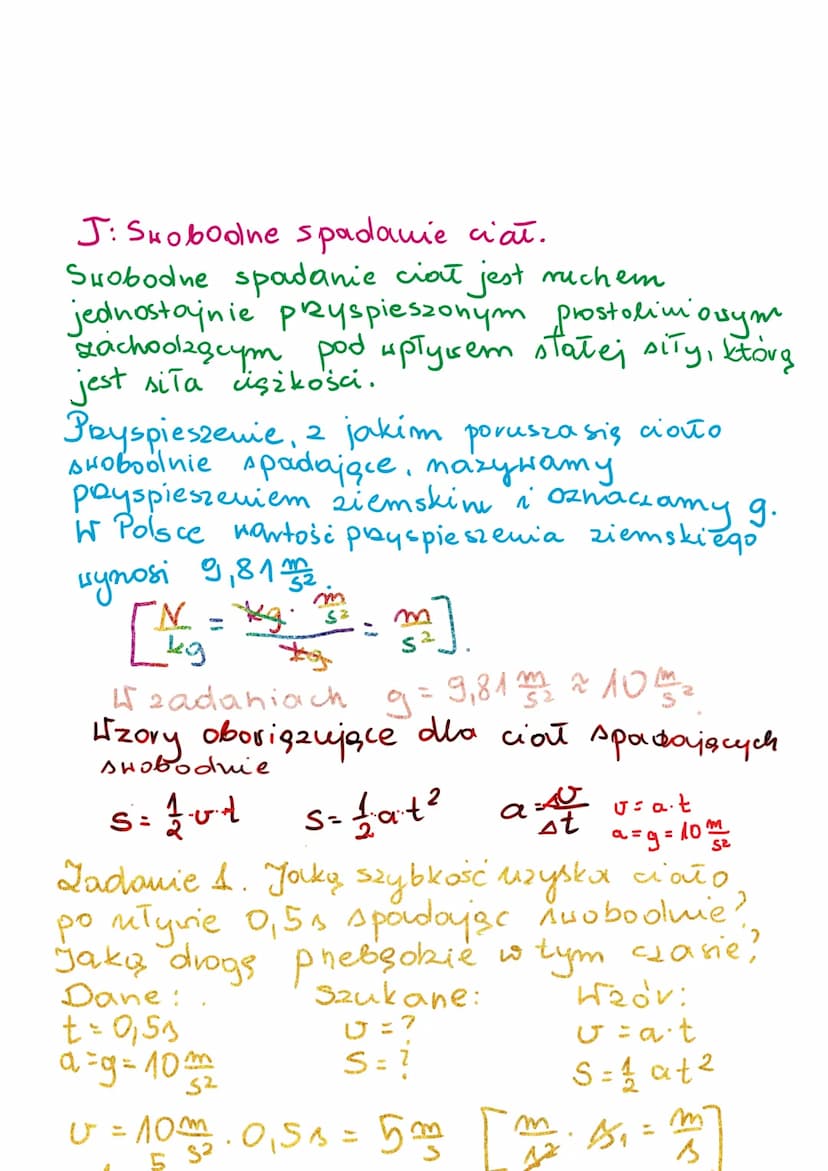 T: Swobodne spadanie ciał.
Swobodne spadanie ciał jest ruchem
jednostajnie przyspieszonym prostoliniowym
zachodzącym pod wpływem stałej siły, którą
jest siła ciężkości.
Przyspieszenie, z jakim porusza się ciało
swobodnie spadające, nazywamy
przyspieszeniem ziemskim i oznaczamy g.
W Polsce wartość przyspieszenia ziemskiego
wynosi 9,81 m/s².
[N/kg = kg · m/s² / kg = m/s²].
W zadaniach g = 9,81 m/s² ≈ 10 m/s²
Wzory obowiązujące dla ciał spadających
swobodnie
s = 1/2 · v · t s = 1/2 · a · t² a = Δv/Δt v = a · t
a = g = 10 m/s²
Zadanie 1. Jaką szybkość uzyska ciało
po upływie 0,5 s spadając swobodnie?
Jaką drogę przebędzie w tym czasie?
Dane: Szukane: Wzór:
t = 0,5 s v = ? v = a · t
a = g = 10 m/s² s = ? s = 1/2 at²
v = 10 m/s² · 0,5 s = 5 m/s [m/s² · s = m/s]